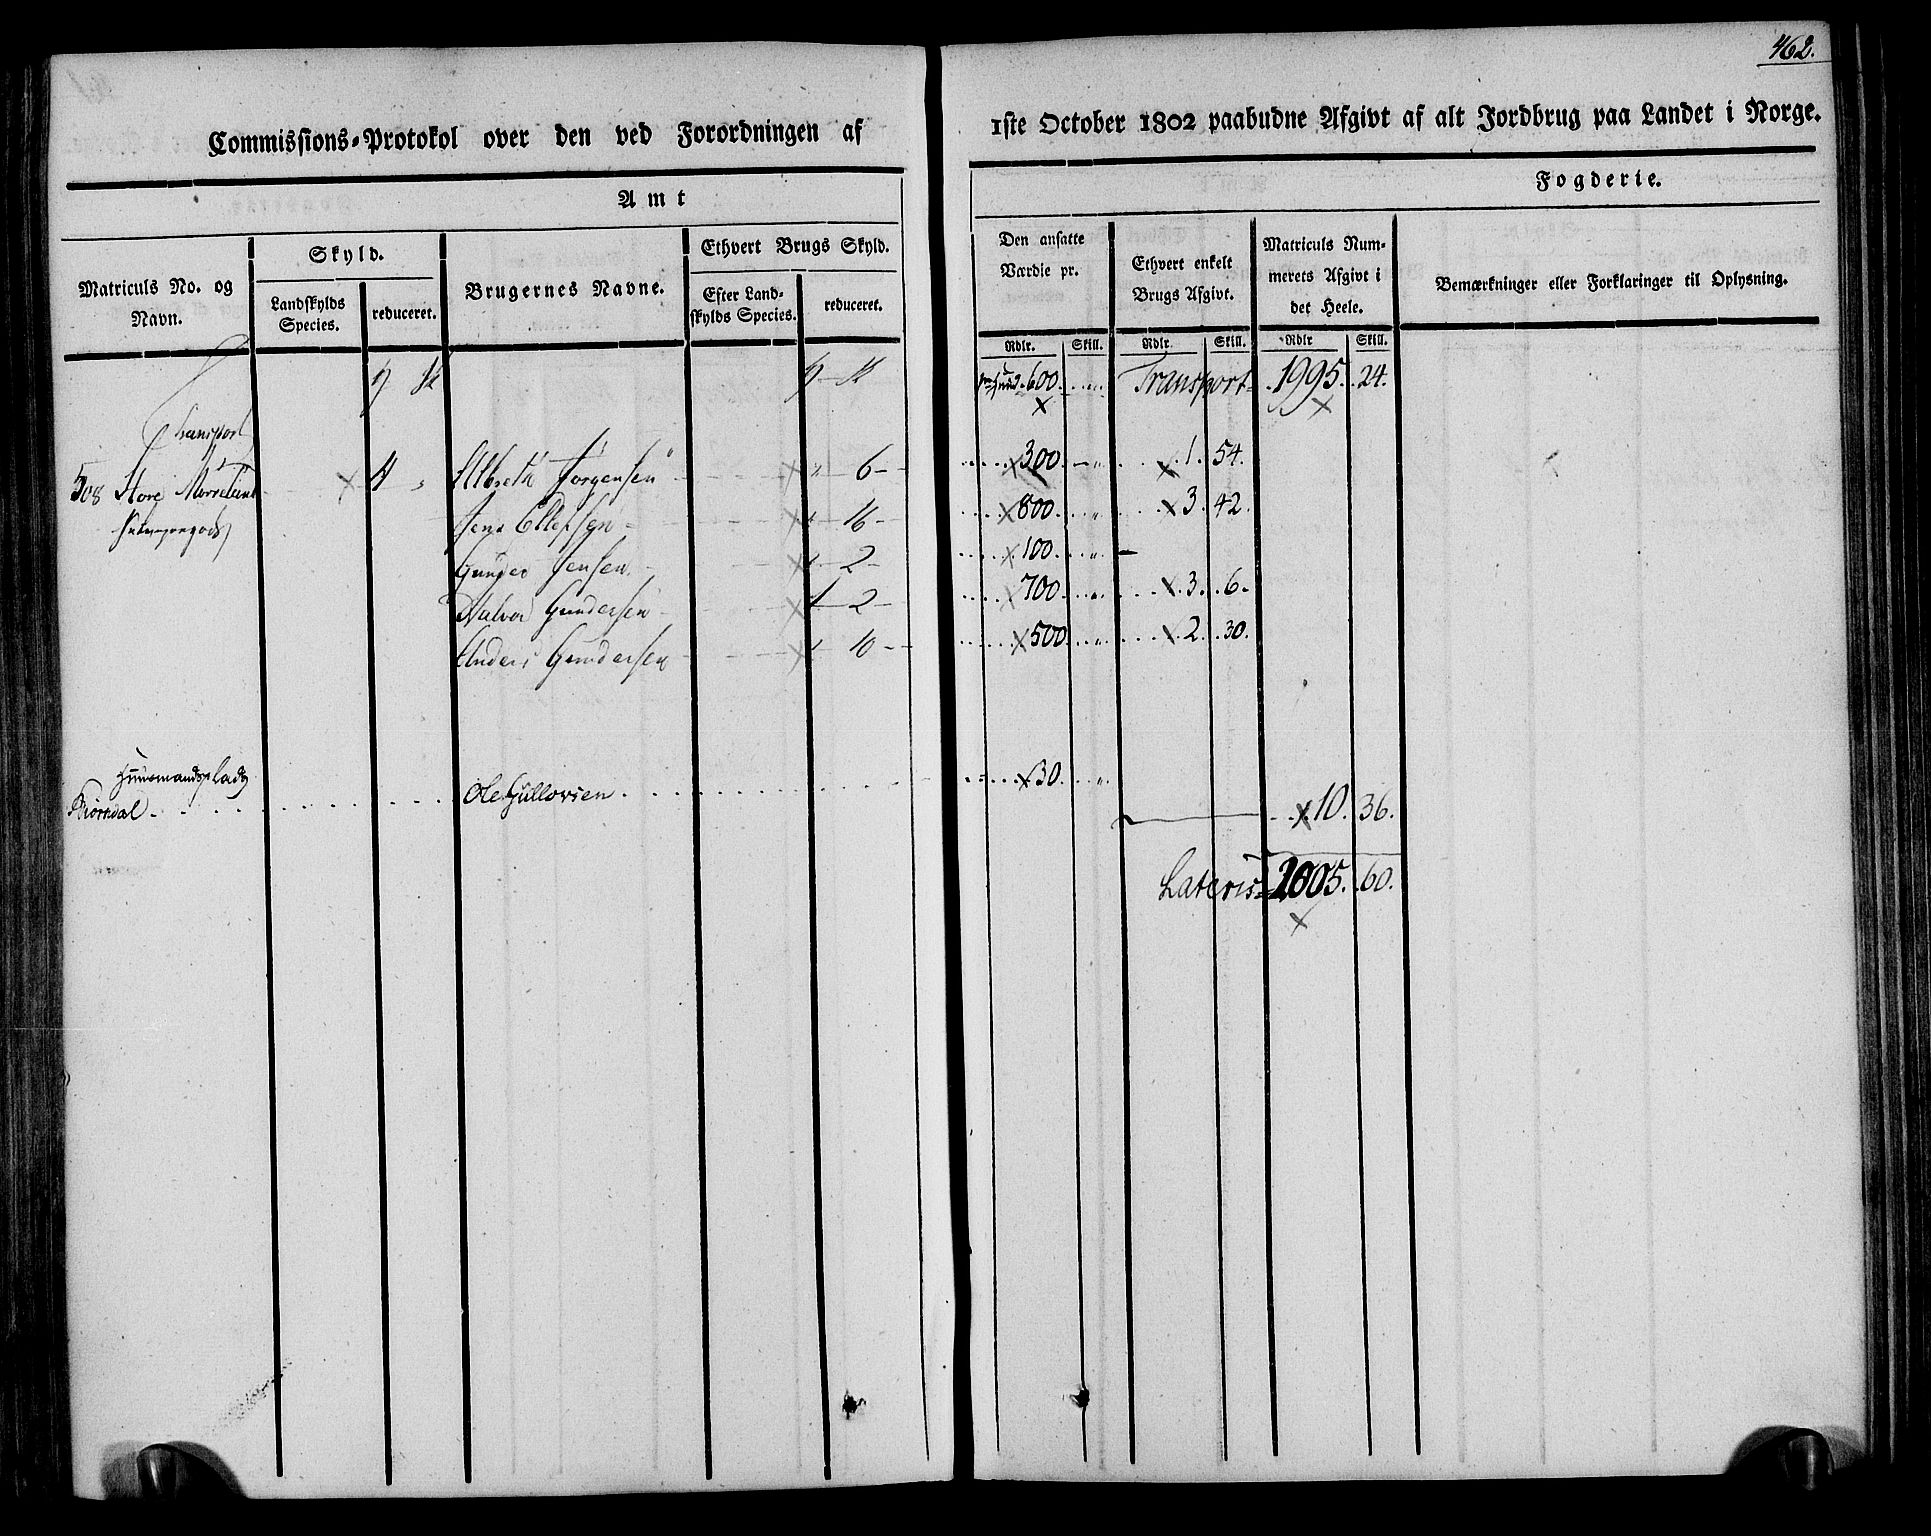 462.
Commissions-Protokol over den ved Forordningen af 1ste October 1802 paabudne Afgivt af alt Jordbrug paa Landet i Norge.
Amt Fogderie.
Matriculs No. og Navn.
Skyld.
Landskylds Species.
reduceret.
Brugernes Navne.
Ethvert Brugs Skyld.
Efter Landskylds Species.
reduceret.
Den ansatte Værdie pr.
Ethvert enkelt Brugs Afgivt.
Matriculs Nummerets Afgivt i det Heele.
Bemærkninger eller Forklaringer til Oplysning.
Rdlr. Skill. Rdlr. Skill. Rdlr Skill.
600. Transport 1995. 24.
Transport
508 Store 4 Albreth Jørgensen 6 300. 1. 54.
Jens Ellefsen 16 800. 3. 42.
Gunder Jensen 2 100.
Halvor Gundersen 1 2 700. 3. 6
Anders Gundersen 10 500. 2. 30.
Huusmandsplads
Biørndal Ole Gullovsen 30.
10. 36.
Lateris 2005. 60.